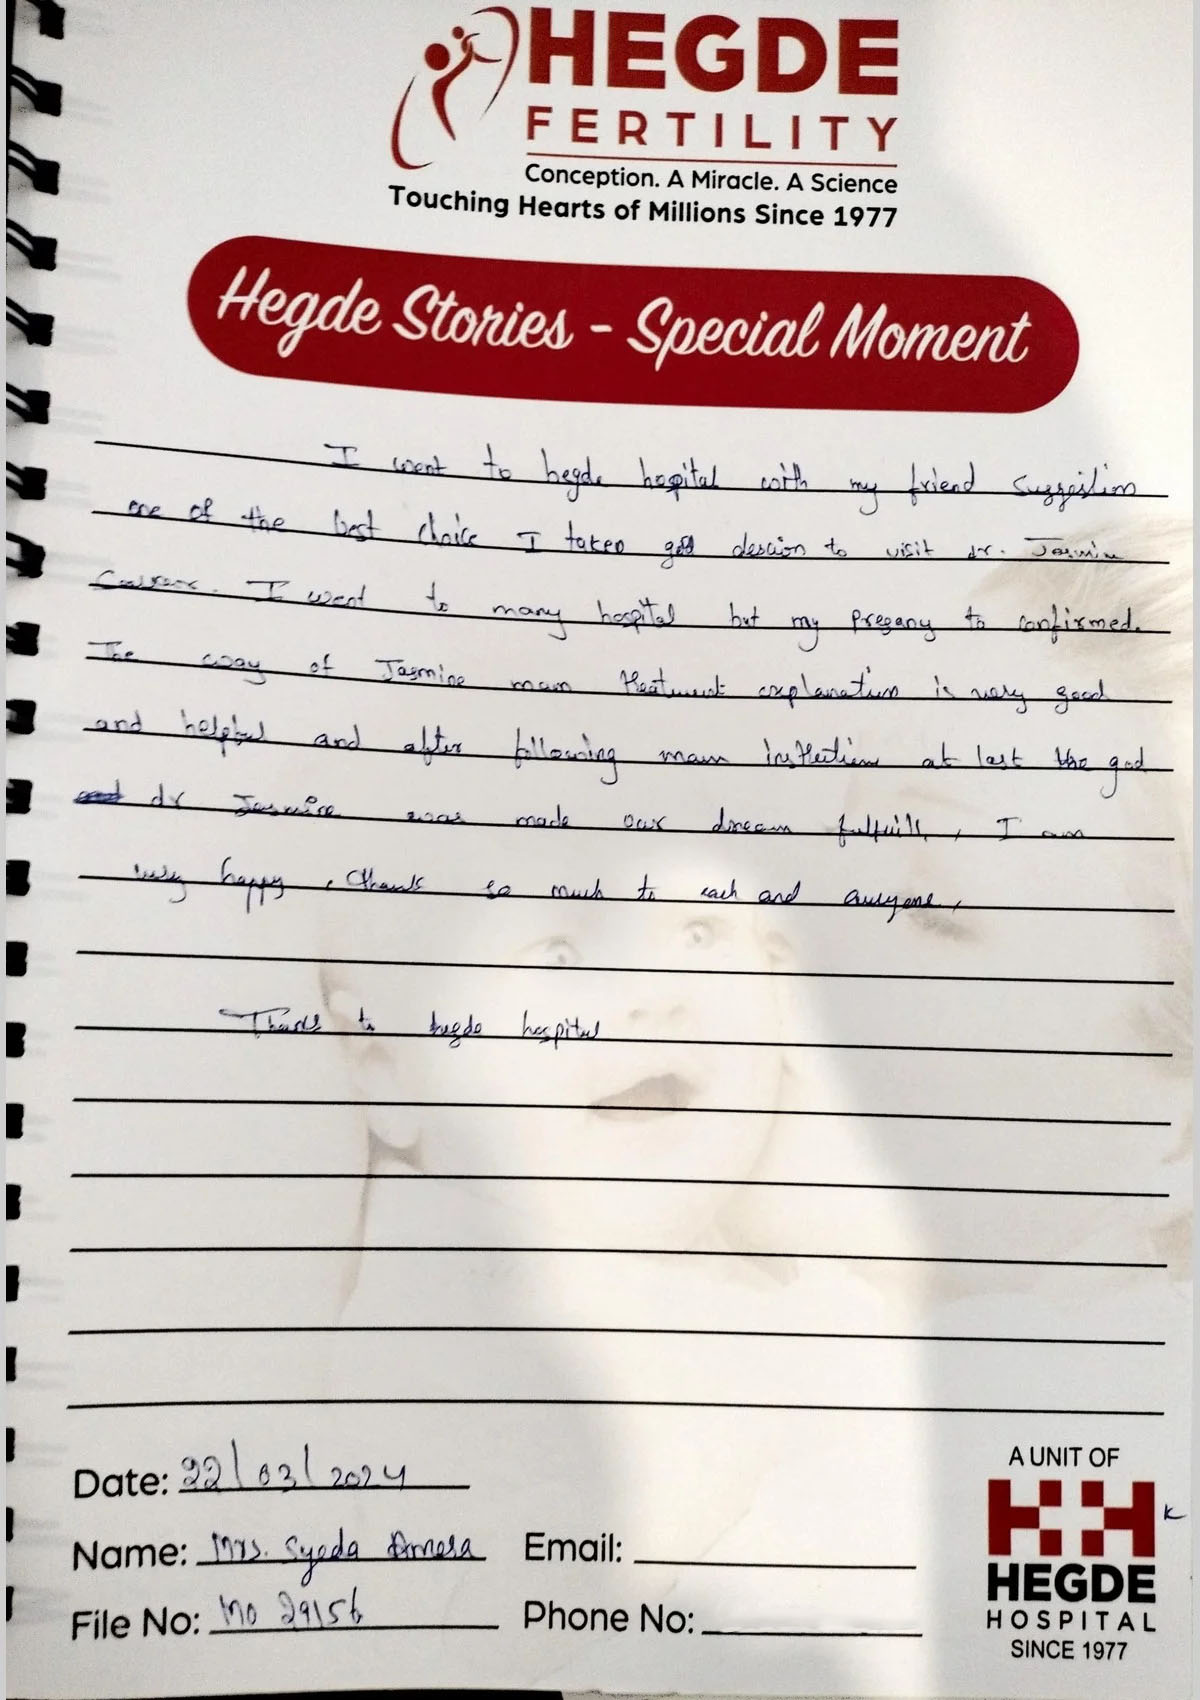 HEGDE
FERTILITY
Conception. A Miracle. A Science
Touching Hearts of Millions Since 1977
Hegde Stories - Special Moment
I went to hegde hospital with my friend suggestion
one of the best choice I taken good descion to visit dr. Jasmine
I went to many hospital but my pregany to confirmed.
The way of Jasmine mam treatment explanation is very good
and helpful and after following mam instruction at last the god
and dr Jasmine was made our dream fulfuill, I am
very happy, thank so much to each and everyone,
Thank to hegde hospital
Date: 22/03/2024
Name: Mrs. Syeda Amera Email:
File No: MO 29156 Phone No:
A UNIT OF
K
HEGDE
HOSPITAL
SINCE 1977